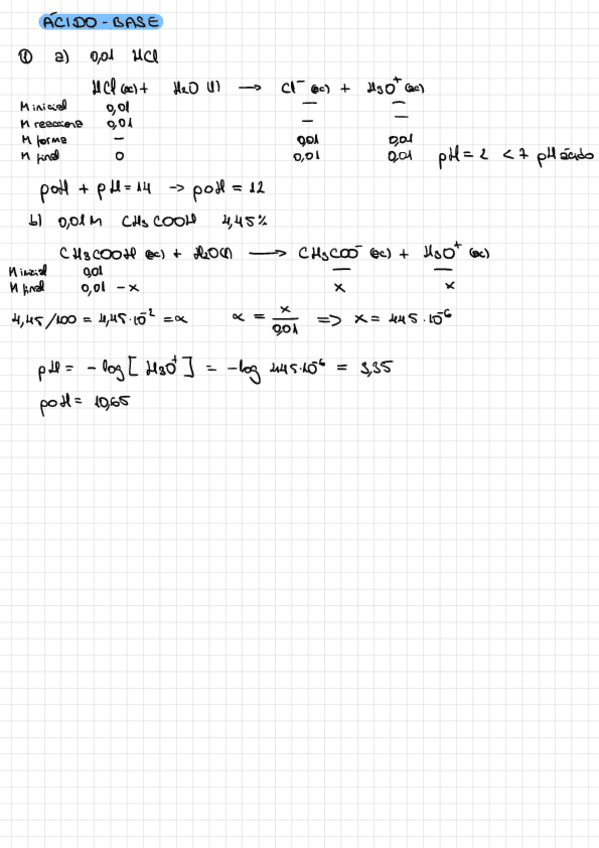 ÁCIDO - BASE
① a) 0,01 HCl
HCl (ac) + H2O (l) → Cl⁻ (ac) + H3O⁺ (ac)
M inicial 0,01 — —
M reacciona 0,01 — —
M forma — 0,01 0,01
M final 0 0,01 0,01 pH = 2 < 7 pH ácido
pOH + pH = 14 → pOH = 12
b) 0,01 M CH3COOH 4,45%
CH3COOH (ac) + H2O (l) → CH3COO⁻ (ac) + H3O⁺ (ac)
M inicial 0,01 — —
M final 0,01 - x x x
4,45/100 = 4,45·10⁻² = α α = x/0,01 => x = 445·10⁻⁶
pH = - log [H3O⁺] = -log 445·10⁻⁶ = 3,35
pOH = 10,65